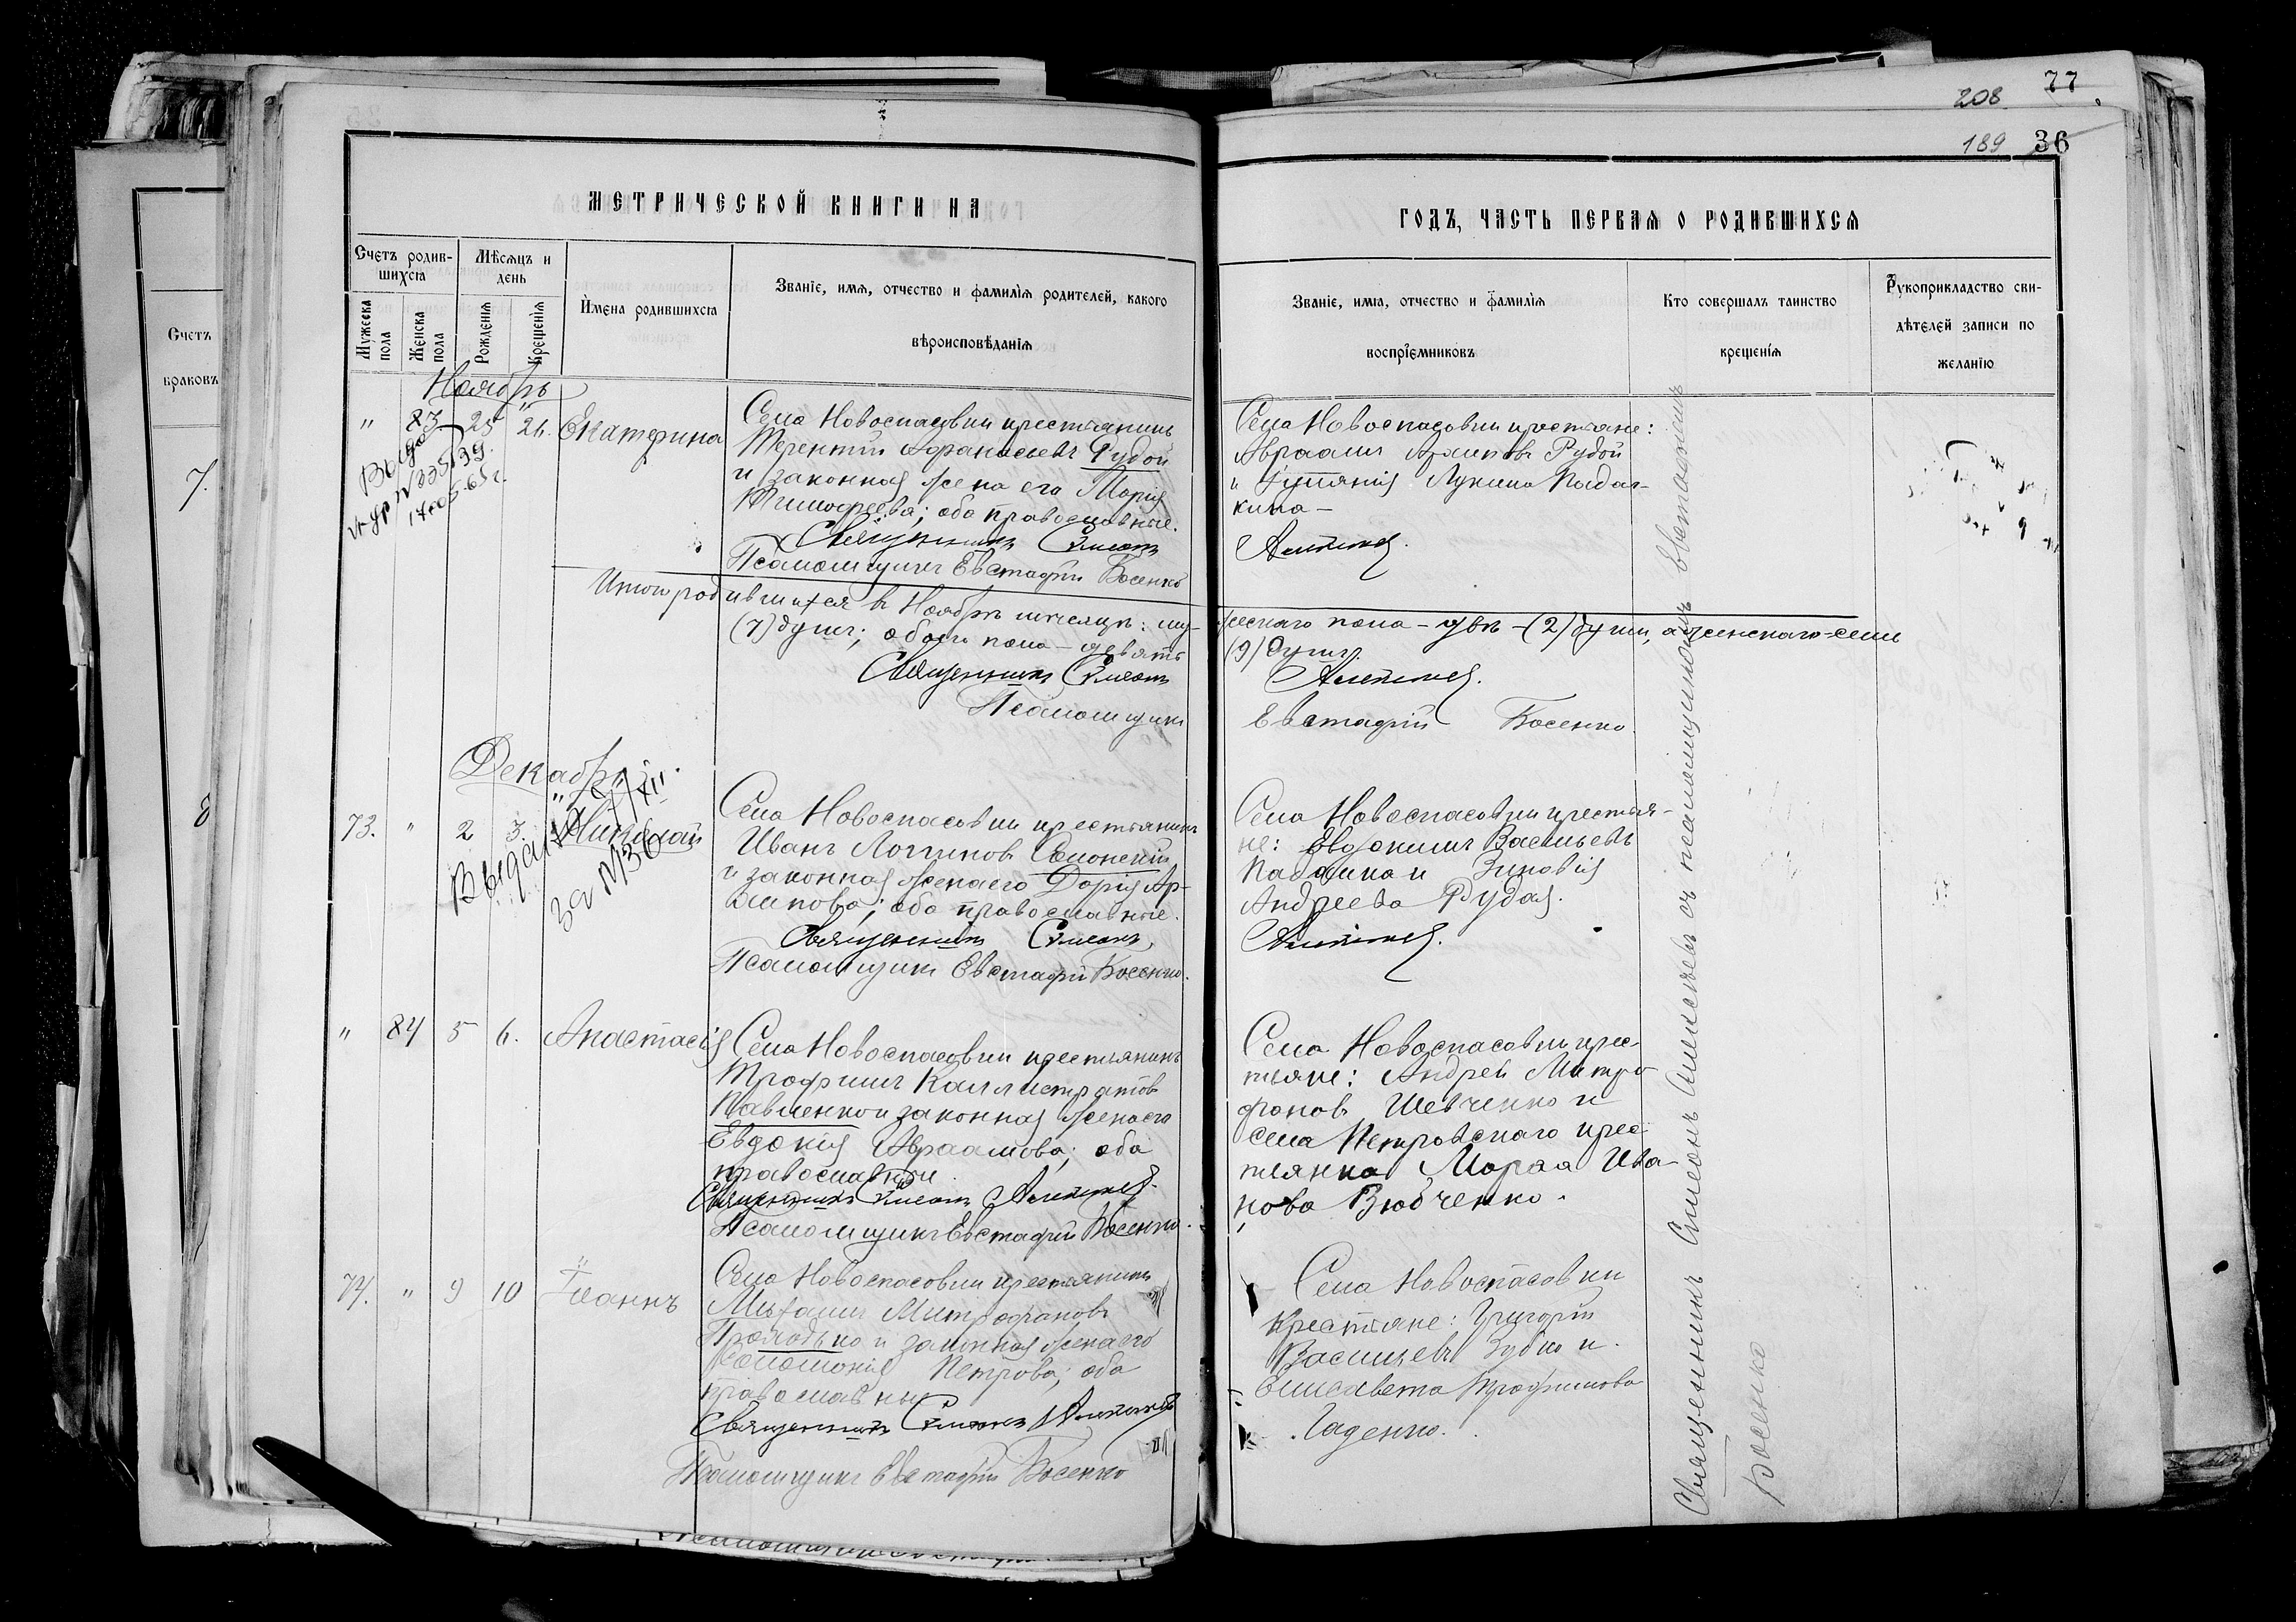 77
208
189 36
МЕТРИЧЕСКОЙ КНИГИ НА
ГОДЪ, ЧАСТЬ ПЕРВАЯ О РОДИВШИХСЯ
Счетъ
браковъ
7.
8
Счетъ родив-
шихся
Мѣсяцъ и
день
Мужеска
пола
Женска
пола
Рожденія
Крещенія
Имена родившихся
Званіе, имя, отчество и фамилія родителей, какого
вѣроисповѣданія
Званіе, имя, отчество и фамилія
воспріемниковъ
Кто совершалъ таинство
крещенія
Рукоприкладство сви-
дѣтелей записи по
желанію
Ноябрь
" 83 25 26. Екатерина
Села Новоспасовки крестьянинъ
Терентій Афанасьевъ Рудой
и законная жена его Марія
Тимофеева; оба православные.
Священникъ Симеонъ
Псаломщикъ Евстафій Косенко
Села Новоспасовки крестьяне:
Авраамъ Рудой
Лукина
Итого родившихся въ Ноябрѣ мѣсяцѣ: му-
жескаго пола – двѣ – (2) души, а женскаго – семь
(7) душъ; обоего пола – девять
(9) душъ.
Священникъ Симеонъ
Псаломщикъ
Евстафій Косенко.
Декабрь
73. " 2 3. Николай
Села Новоспасовки крестьянинъ
Иванъ Логгиновъ
и законная жена его Дарія Ар-
хипова; оба православные.
Священникъ Симеонъ
Псаломщикъ Евстафій Косенко.
Села Новоспасовки крестья-
не: Евдокимъ Васильевъ
и Зиновія
Андреева Рудая.
" 84 5 6. Анастасія
Села Новоспасовки крестьянинъ
Трофимъ Каллистратовъ
Павленко и законная жена его
Евдокія Авраамова; оба
православные
Священникъ Симеонъ
Псаломщикъ Евстафій Косенко.
Села Новоспасовки крес-
тьяне: Андрей Митро-
фановъ Шевченко и
села Петровскаго крес-
тьянка Марѳа Ива-
нова Вюбченко.
74. " 9 10 Іоаннъ
Села Новоспасовки крестьянинъ
Михаилъ Митрофановъ
Проходько и законная жена его
Соломонія Петрова; оба
православные
Священникъ Симеонъ
Псаломщикъ Евстафій Косенко
Села Новоспасовки
Крестьяне: Григорій
Васильевъ Зубко и
Елисавета Трофимова
Гаденко.
Священникъ Симеонъ съ псаломщикомъ Евстафіемъ
Косенко